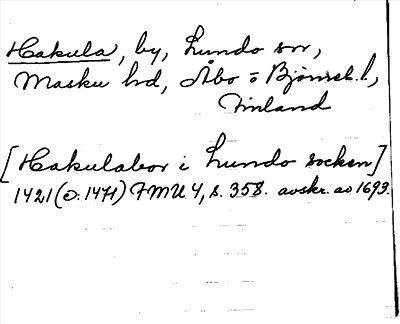 Hakula, by, Lundo sn,
Masku hd, Åbo o Bjönsb. l.,
Finland
[Hakulabor i Lundo socken]
1421 (o. 1471) FMU 4, s. 358. avskr. av 1693.